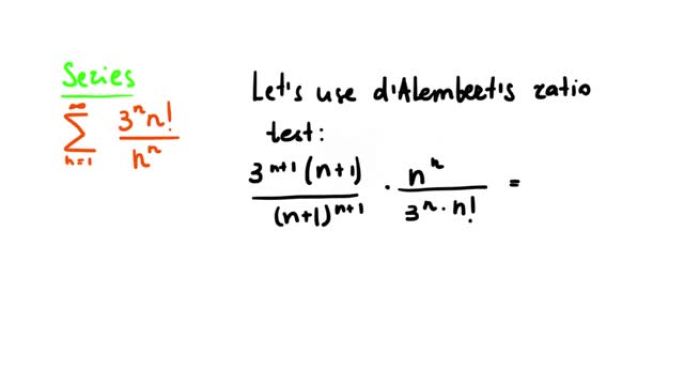 Series
∞
∑ 3ⁿn! / nⁿ
n=1
Let's use d'Alembert's ratio
test:
3ⁿ⁺¹(n+1) / (n+1)ⁿ⁺¹ · nⁿ / 3ⁿ·n! =